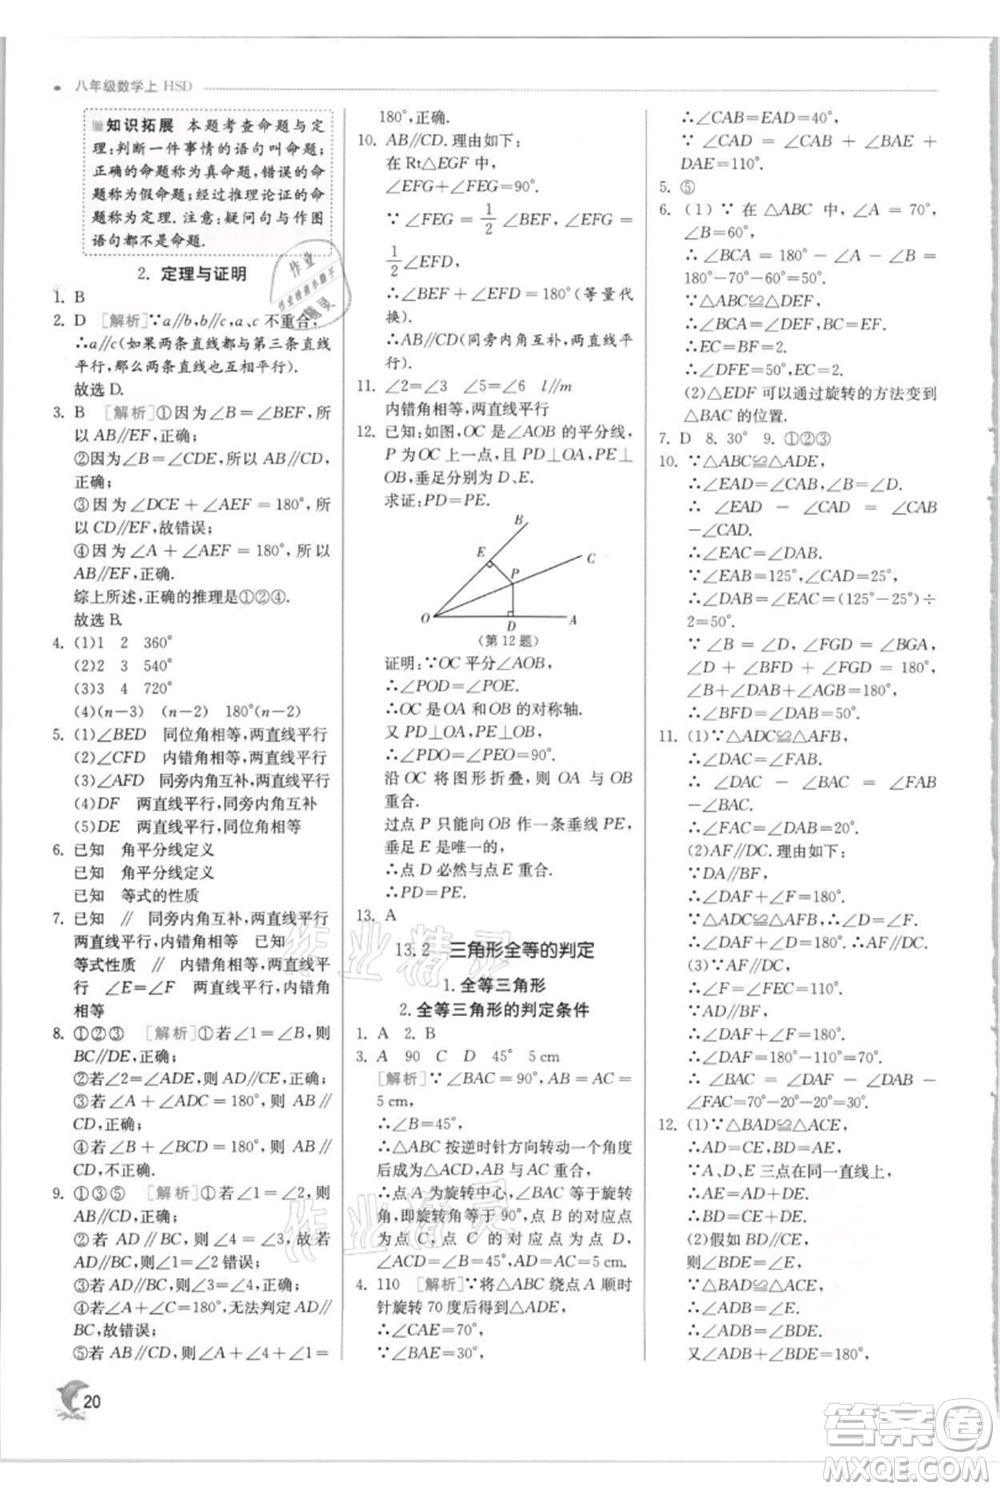 八年级数学上 HSD
知识拓展 本题考查命题与定
理:判断一件事情的语句叫命题;
正确的命题称为真命题,错误的命
题称为假命题;经过推理论证的命
题称为定理. 注意:疑问句与作图
语句都不是命题.
2. 定理与证明
1. B
2. D [解析]∵a//b,b//c,a、c 不重合,
∴a//c(如果两条直线都与第三条直线
平行,那么两条直线也互相平行).
故选 D.
3. B [解析]①因为∠B=∠BEF,所
以 AB//EF,正确;
②因为∠B=∠CDE,所以 AB//CD,
正确;
③因为∠DCE+∠AEF=180°,所
以 CD//EF,故错误;
④因为∠A+∠AEF=180°,所以
AB//EF,正确.
综上所述,正确的推理是①②④.
故选 B.
4. (1)1 2 360°
(2)2 3 540°
(3)3 4 720°
(4)(n-3) (n-2) 180°(n-2)
5. (1)∠BED 同位角相等,两直线平行
(2)∠CFD 内错角相等,两直线平行
(3)∠AFD 同旁内角互补,两直线平行
(4)DF 两直线平行,同旁内角互补
(5)DE 两直线平行,同位角相等
6. 已知 角平分线定义
已知 等式的性质
7. 已知 // 同旁内角互补,两直线平行
两直线平行,内错角相等 已知
等式性质 // 内错角相等,两直线
平行 ∠E=∠F 两直线平行,内错角
相等
8. ①②③ [解析]①若∠1=∠B,则
BC//DE,正确;
②若∠2=∠ADE,则 BC//DE,正确;
③若∠A+∠ADC=180°,则 AB//
CD,正确;
④若∠B+∠BCD=180°,则 AB//
CD,正确.
9. ①③⑤ [解析]①若∠1=∠2,则
AB//CD,正确;
②若∠3=∠4,则 AD//BC,故
AB//CD 错误;
③若 AB//CD,则∠1=∠2,正确;
④若∠A+∠C=180°,无法判定 AD//
BC,故错误;
⑤若 AB//CD,则∠2+∠3+∠A=
180°,正确.
10. AB//CD.理由如下:
在 Rt△EGF 中,
∠EFG+∠FEG=90°.
∵∠FEG=1/2∠BEF,∠EFG=
1/2∠EFD,
∴∠BEF+∠EFD=180°(等量代
换).
∴AB//CD(同旁内角互补,两直线平
行).
11. ∠2=∠3 ∠5=∠6 l//m
内错角相等,两直线平行
12. 已知:如图,OC 是∠AOB 的平分线,
P 为 OC 上一点,且 PD⊥OA,PE⊥
OB,垂足分别为 D、E.
求证:PD=PE.
B
E
P
C
O
D
A
(第 12 题)
证明:∵OC 平分∠AOB,
∴∠POD=∠POE.
∴OC 是 OA 和 OB 的对称轴.
又 PD⊥OA,PE⊥OB,
∴∠PDO=∠PEO=90°.
沿 OC 将图形折叠,则 OA 与 OB
重合.
过点 P 只能向 OB 作一条垂线,且
垂足 E 是唯一的,
∴点 D 必然与点 E 重合.
∴PD=PE.
13. A
13.2 三角形全等的判定
1. 全等三角形
2. 全等三角形的判定条件
1. A 2. B
3. A 90 C D 45° 5 cm
[解析]∵∠BAC=90°,AB=AC=
5 cm,
∴∠B=45°,
∴△ABC 按逆时针方向转动一个角度
后成为△ADE,△ABC≌△ADE,
∴点 A 为旋转中心,∠BAC 等于旋转
角,即旋转角等于 90°,点 B 的对应点
为点 C,点 C 的对应点为点 D,
∴∠B=∠ACD=45°,CD=BC=5 cm.
4. 110 [解析]∵将△ABC 绕点 A 顺时
针旋转 70 度后得到△ADE,
∴∠CAE=70°,
∵∠BAE=110°,
∴∠CAB=EAD=40°,
∴∠CAD=∠CAB+∠BAE+
DAE=110°.
5. ⑤
6. (1)∵在△ABC 中,∠A=70°,
∠B=60°,
∴∠BCA=180°-∠A-∠B=
180°-70°-60°=50°.
∵△ABC≌△DEF,
∴∠BCA=∠DFE,BC=EF.
∴EC=BF=2.
∴∠DFE=50°,EC=2.
(2)△EDF 可以通过旋转的方法变到
△BAC 的位置.
7. D 8. 30° 9. ①②③
10. ∵△ABC≌△ADE,
∴∠EAD=∠CAB,∠B=∠D.
∴∠EAD-∠CAD=∠CAB
-∠CAD.
∴∠EAC=∠DAB.
∵∠EAB=125°,∠CAD=25°,
∴∠DAB=∠EAC=(125°-25°)÷
2=50°.
∵∠B=∠D,∠FGD=∠BGA,
∠D+∠BFD+∠FGD=180°,
∠B+∠DAB+∠AGB=180°,
∴∠BFD=∠DAB=50°.
11. (1)∵△DAC≌△AFB,
∴∠DAC=∠FAB.
∴∠DAC-∠BAC=∠FAB
-∠BAC.
∴∠FAC=∠DAB=20°.
(2)AF//DC.理由如下:
∵DA//BF,
∴∠DAF+∠F=180°.
∵△DAC≌△AFB,∴∠D=∠F.
∴∠DAF+∠D=180°.∴AF//DC.
(3)∵AF//DC,
∴∠FAC=∠ACD=70°.
∵AD//BF,
∴∠DAF+∠F=180°.
∴∠DAF=180°-∠F=100°.
∴∠BAC=∠DAF-∠DAB-
∠FAC=100°-70°-20°=10°.
12. (1)∵△BAD≌△ACE,
∴AD=CE,BD=AE.
∵A、D、E 三点在同一直线上,
∴AE=AD+DE.
∴BD=CE+DE.
(2)假如 BD//CE,
则∠BDE=∠E.
∵△BAD≌△ACE,
∴∠ADB=∠E.
∴∠ADB=∠BDE.
又∠ADB+∠BDE=180°,
20
作业精灵
作业精灵
答案圈
MXQE.COM